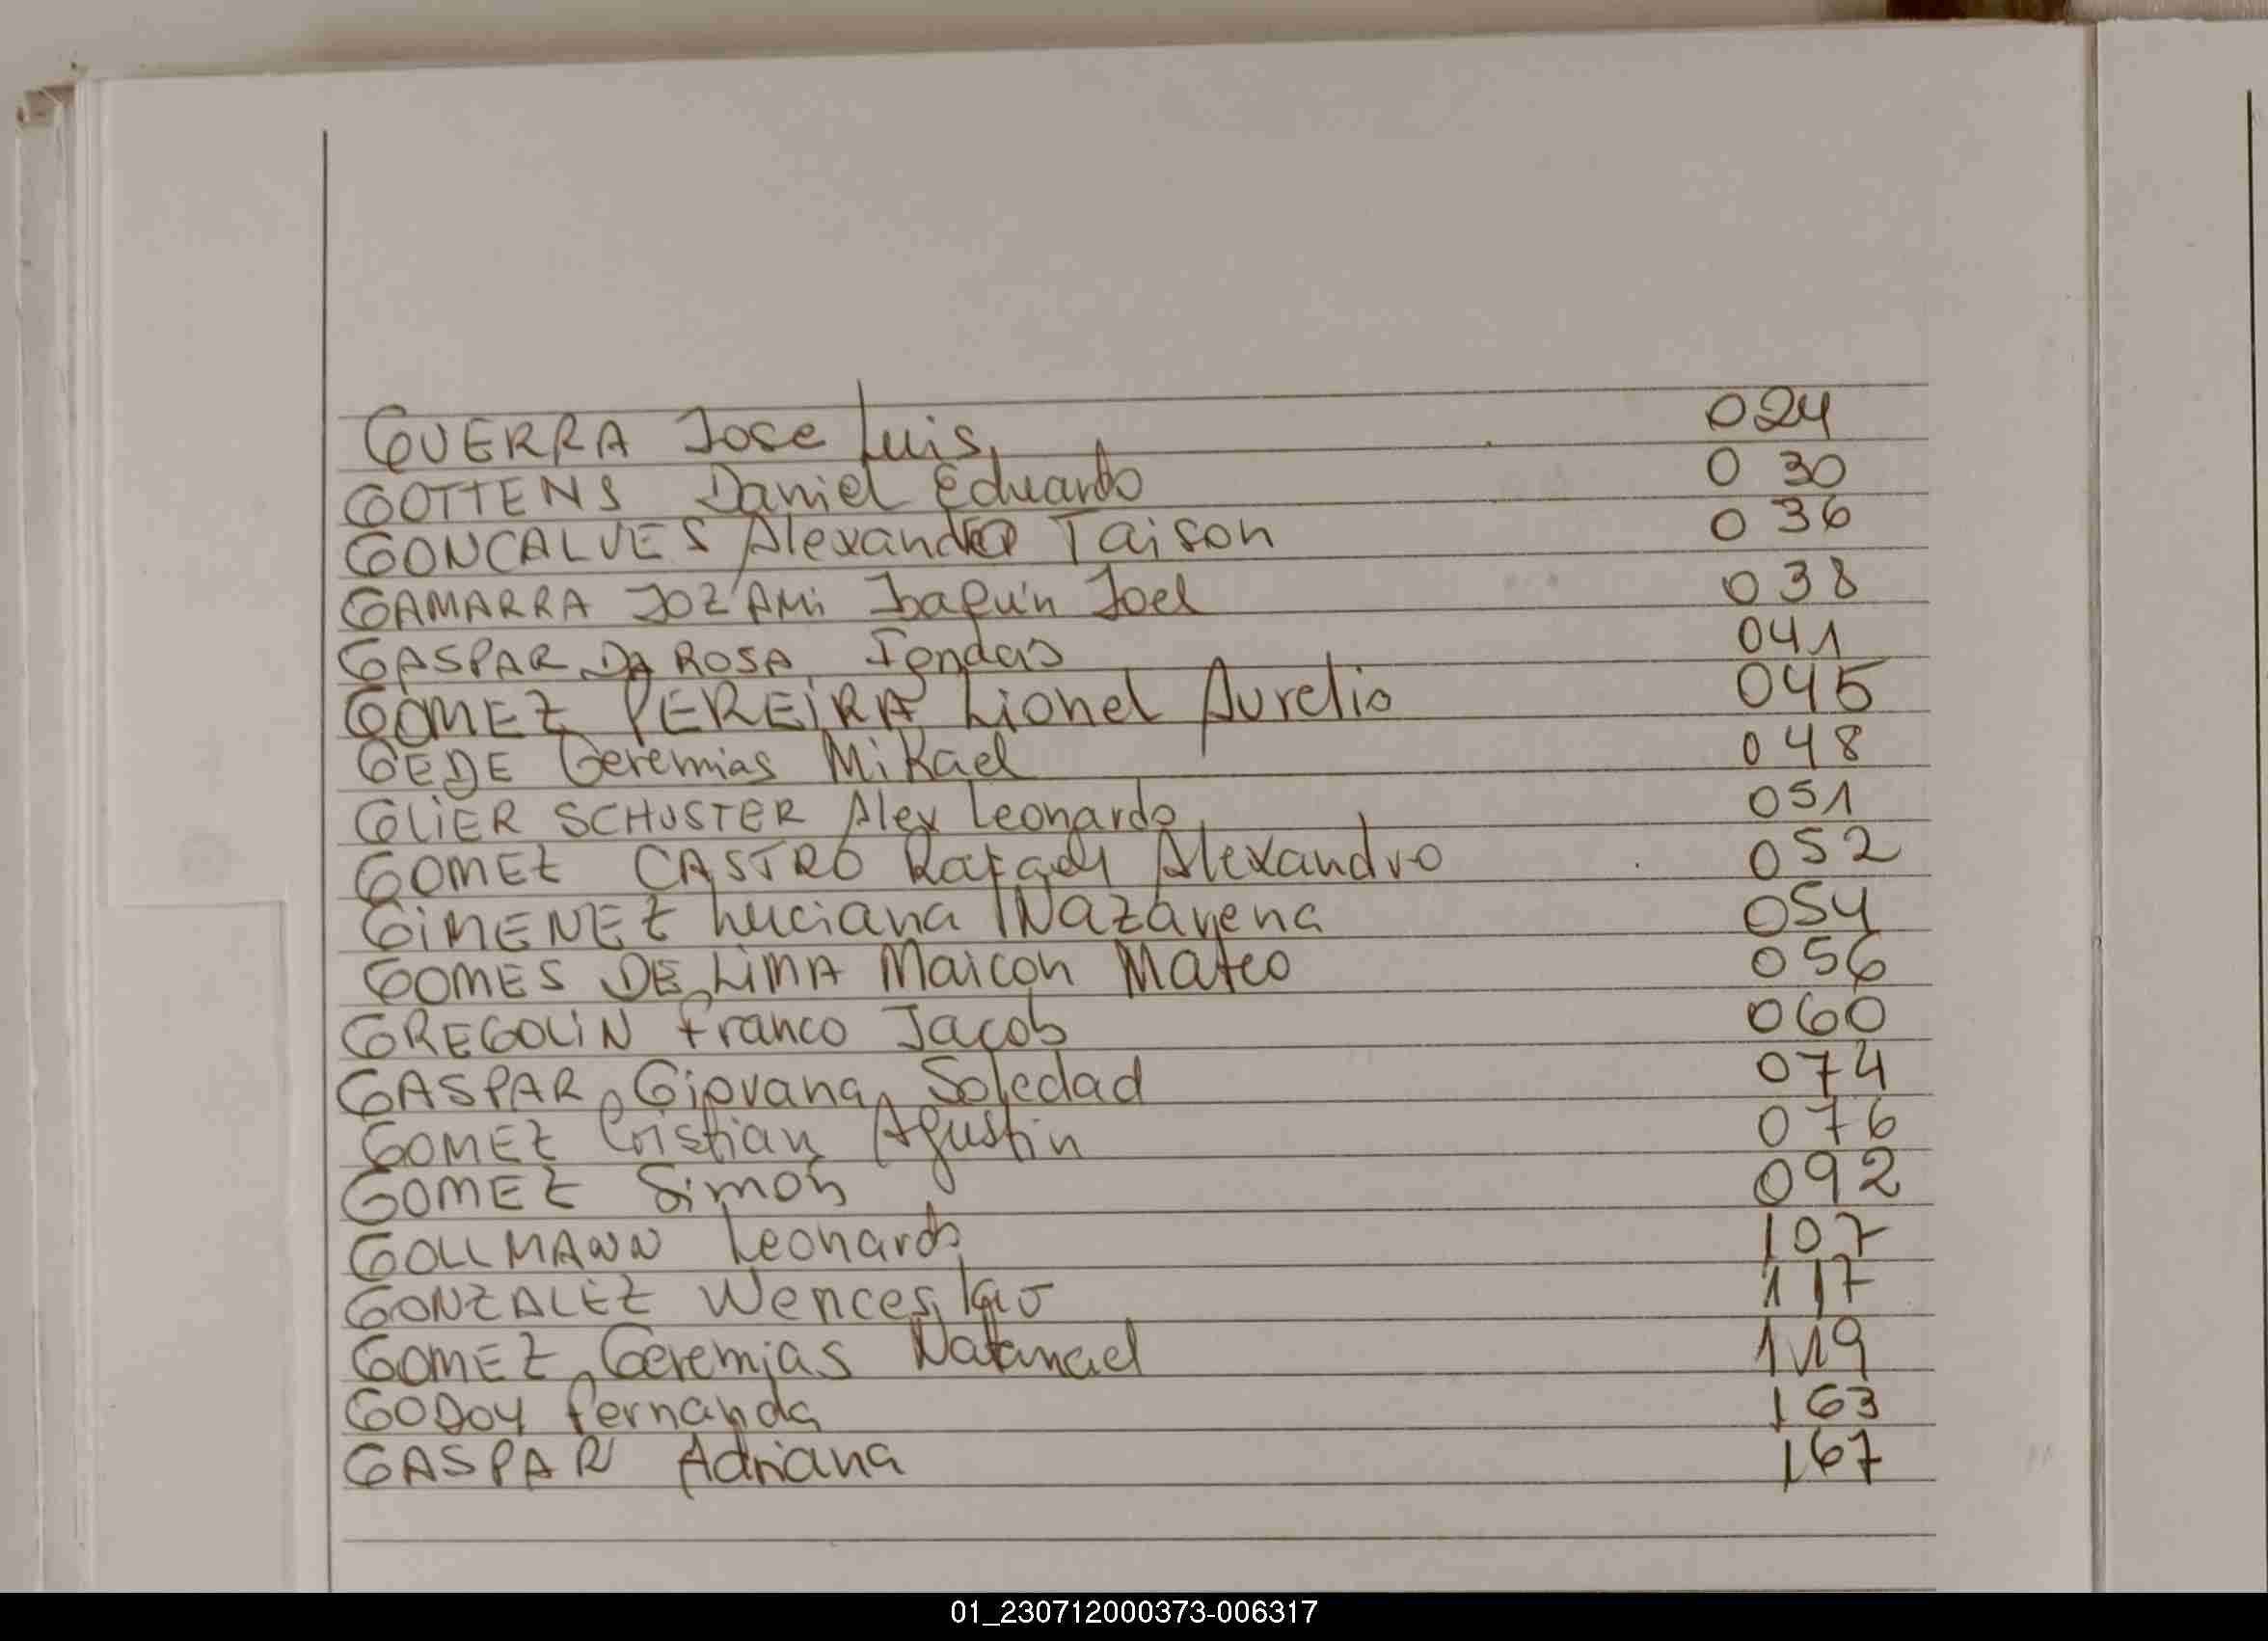 GUERRA Jose Luis 024
GOTTENS Daniel Eduardo 030
GONCALVES Alexandro Taison 036
GAMARRA JOZAMi Joaquin Joel 038
GASPAR DA ROSA 041
GOMEZ PEREIRA Lionel Aurelio 045
GEDE Geremias Mikael 048
GLIER SCHUSTER Alex Leonardo 051
GOMEZ CASTRO Rafael Alexandro 052
GIMENEZ Luciana Nazarena 054
GOMES DE LIMA Maicon Mateo 056
GREGOLIN Franco Jacob 060
GASPAR Giovana Soledad 074
GOMEZ Cristian Agustin 076
GOMEZ Simon 092
GOLLMANN Leonardo 107
GONZALEZ Wenceslao 117
GOMEZ Geremias Natanael 119
GODOY Fernanda 163
GASPAR Adriana 167
01_230712000373-006317